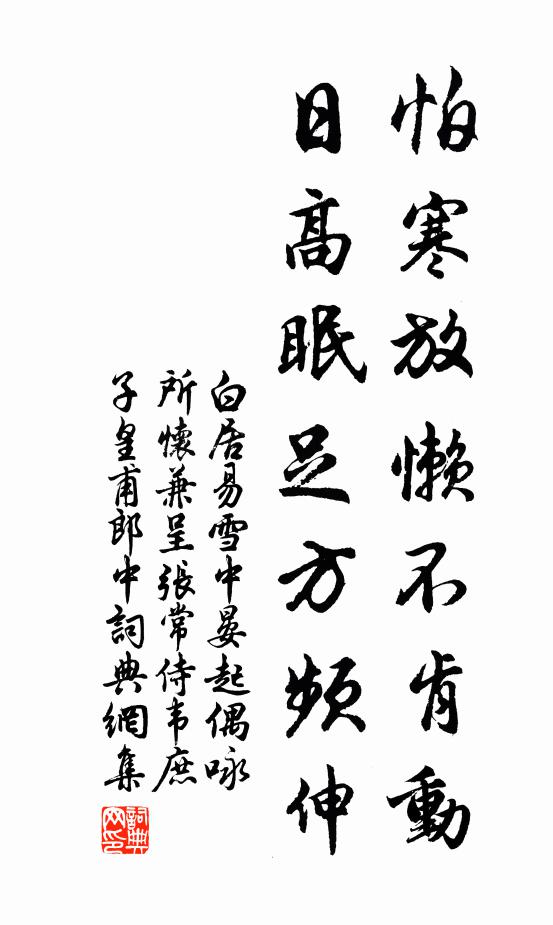 怕寒放懶不肯動
日高眠足方頻伸
白居易雪中晏起偶咏
所懷兼呈張常侍韦庶
子皇甫郎中詞典網集
詞典网印